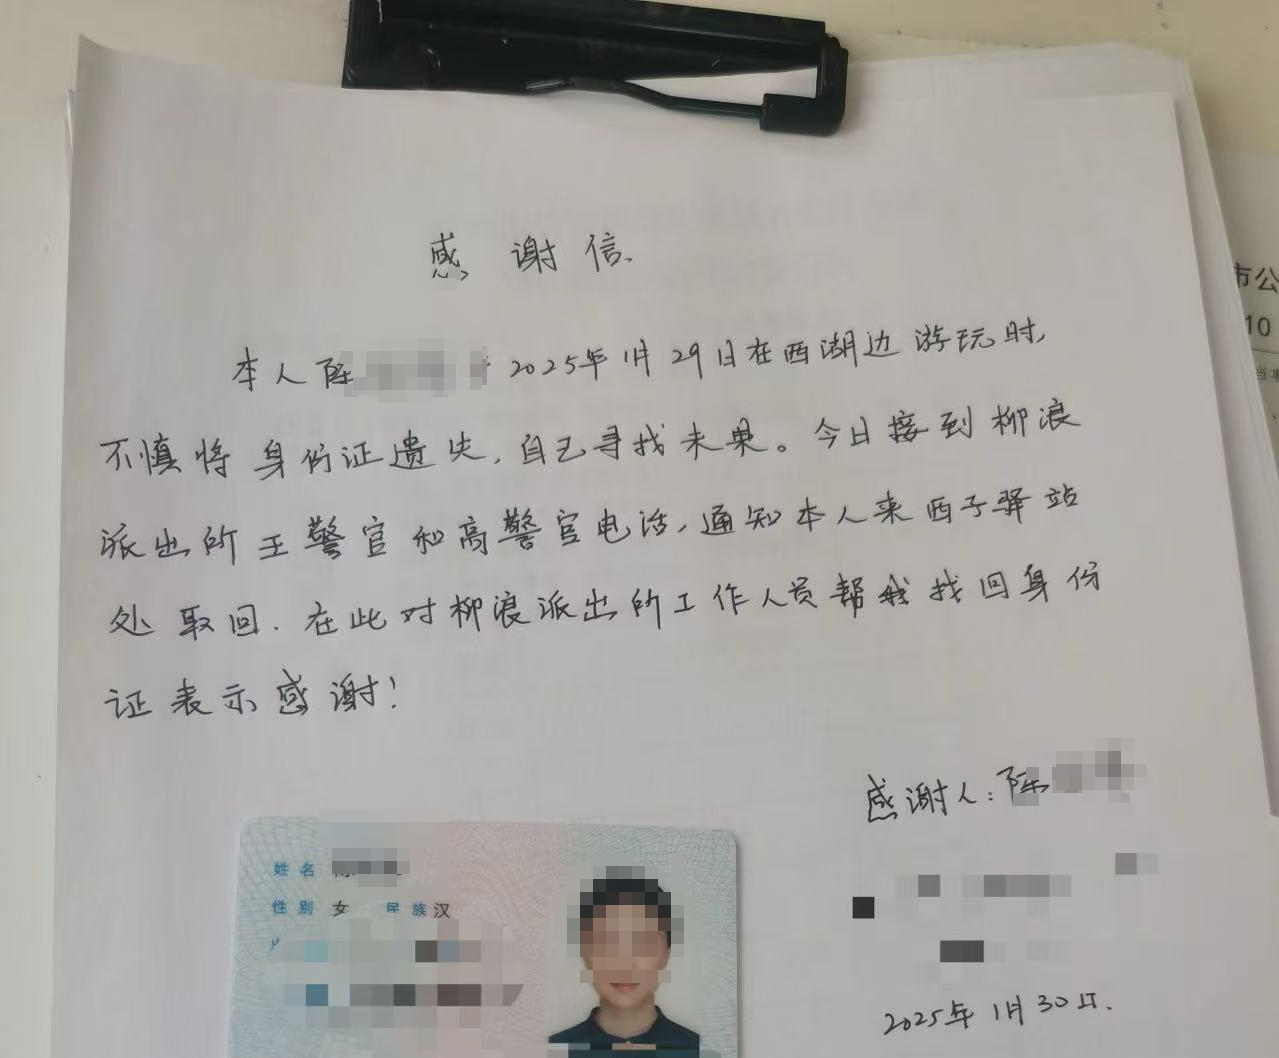 感谢信
本人陈 2025年1月29日在西湖边游玩时,
不慎将身份证遗失,自己寻找未果。今日接到柳浪
派出所王警官和高警官电话,通知本人来西子驿站
处取回.在此对柳浪派出所工作人员帮我找回身份
证表示感谢!
感谢人:陈
2025年1月30日.
姓名
性别 女 民族 汉
市公
10
当事